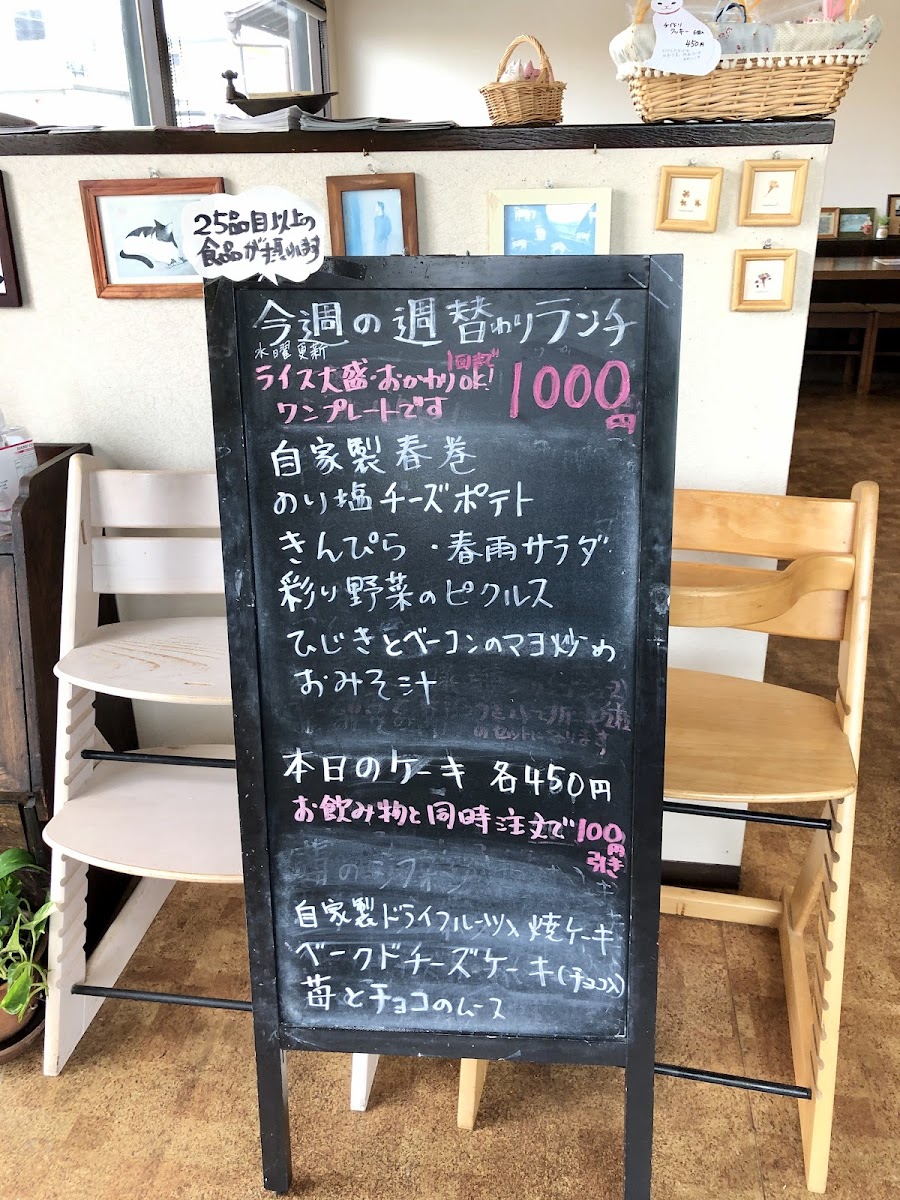 クッキー
450円
25品目以上の
食品が摂れます
今週の週替わりランチ
水曜更新
ライス大盛・おかわりOK!
1回まで
1000円
ワンプレートです
自家製春巻
のり塩チーズポテト
きんぴら ・春雨サラダ
彩り野菜のピクルス
ひじきとベーコンのマヨ炒め
おみそ汁
のセットになります
本日のケーキ 各450円
お飲み物と同時注文で100円引き
自家製ドライフルーツ入焼ケーキ
ベークドチーズケーキ(チョコ入)
苺とチョコのムース